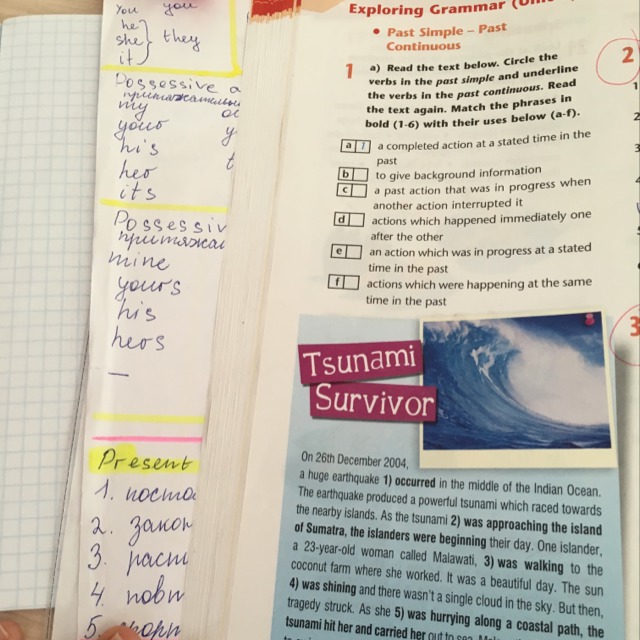 You you
he
she } they
it
Possessive a
притяжательны
my
your y
his t
her
its
Possessiv
притяжа
mine
yours
his
hers
—
Present
1. поста
2. закон
3. расп
4. повт
5.
Exploring Grammar
• Past Simple – Past
Continuous
1 a) Read the text below. Circle the
verbs in the past simple and underline
the verbs in the past continuous. Read
the text again. Match the phrases in
bold (1-6) with their uses below (a-f).
a 1 a completed action at a stated time in the
past
b to give background information
c a past action that was in progress when
another action interrupted it
d actions which happened immediately one
after the other
e an action which was in progress at a stated
time in the past
f actions which were happening at the same
time in the past
Tsunami
Survivor
On 26th December 2004,
a huge earthquake 1) occurred in the middle of the Indian Ocean.
The earthquake produced a powerful tsunami which raced towards
the nearby islands. As the tsunami 2) was approaching the island
of Sumatra, the islanders were beginning their day. One islander,
a 23-year-old woman called Malawati, 3) was walking to the
coconut farm where she worked. It was a beautiful day. The sun
4) was shining and there wasn't a single cloud in the sky. But then,
tragedy struck. As she 5) was hurrying along a coastal path, the
tsunami hit her and carried her out to sea.
2
1
2
3
3